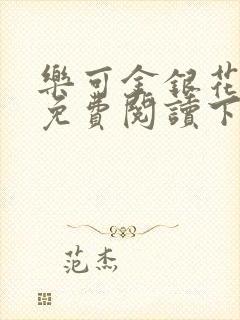 樂可金銀花
免費閱讀下
范杰